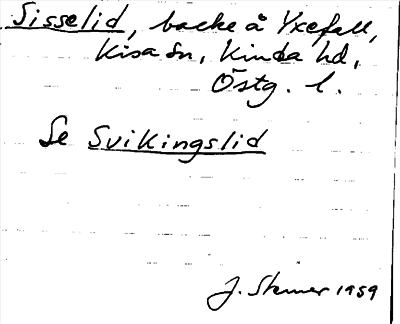 Sisselid, backe å Yxefall,
Kisa sn, Kinda hd,
Östg. l.
Se Svikingslid
J. Sterner 1959